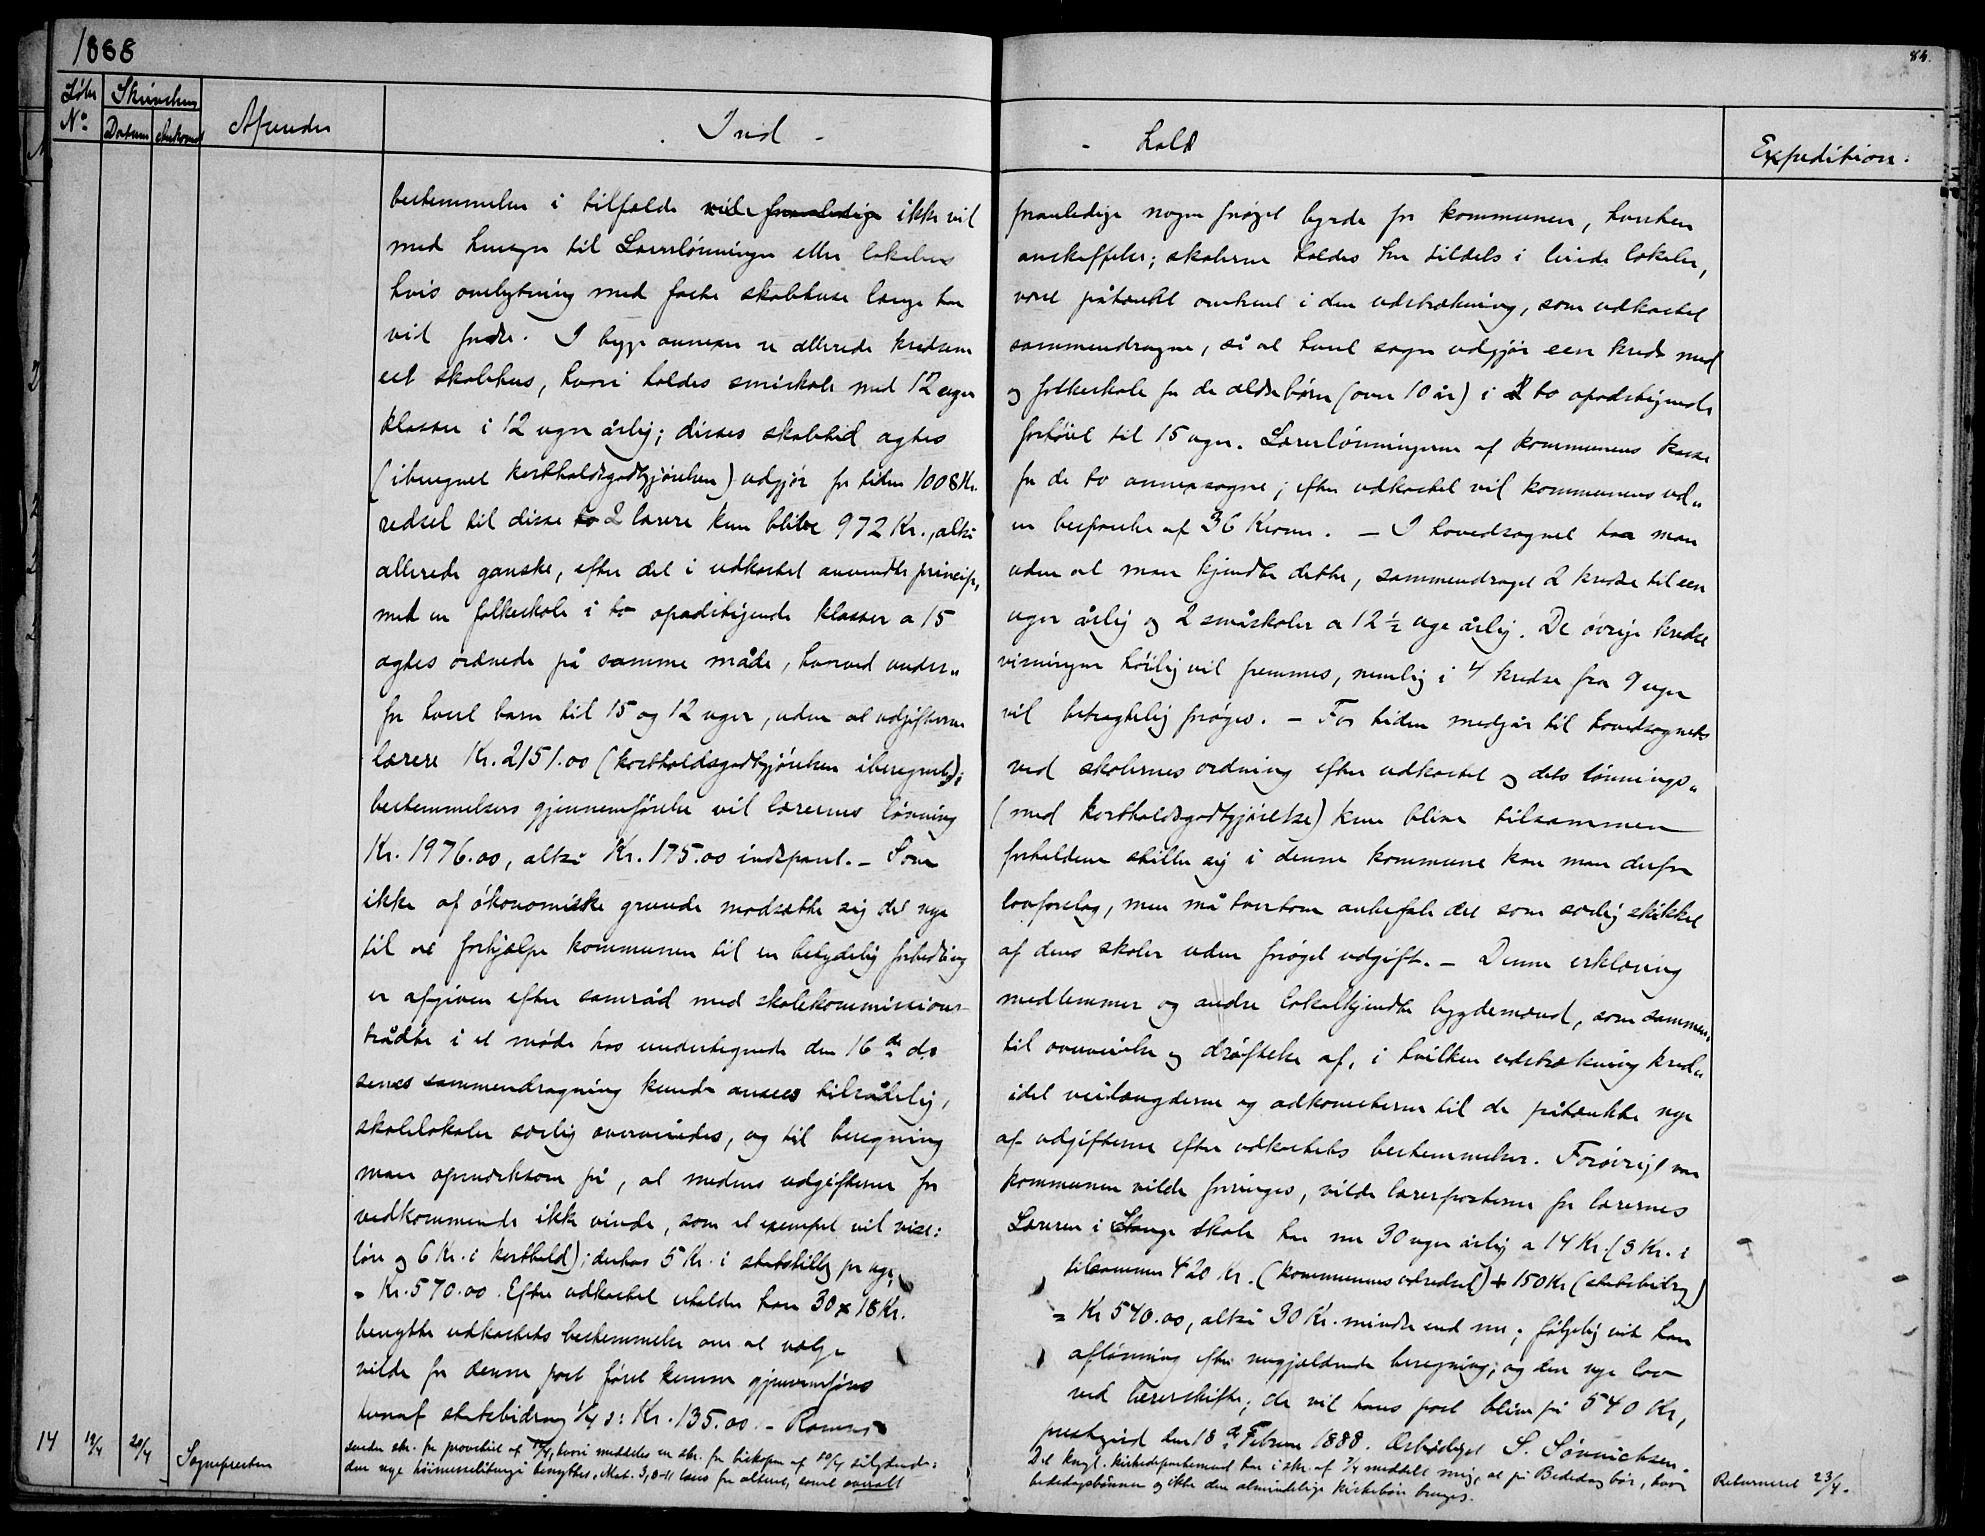 1888
84.
Løbe No
Skrivelsens
Datum
Ankomst
Afsender
Ind - - hold
Expedition.
bestemmelser i tilfælde vil foranledige ikke vil foranledige nogen forøget byrde for kommunen, hverken
med hensyn til Lærerlønninger eller lokalers anskaffelse; skolerne holdes her tildels i leiede lokaler,
hvis ombytning med faste skolehuse længe har været påtænkt omtrent i den udstrækning, som udkastet
vil fordre. I begge annexer er allerede kredsene sammendragne, så at hvert sogn udgjør een kreds med
eet skolehus, hvori holdes småskole med 12 uger og folkeskole for de ældre børn (over 10 år) i to opadstigende
klasser i 12 uger årlig; disses skoletid agtes forhøiet til 15 uger. Lærerlønningerne af kommunens kasse
(iberegnet kostholdsgodtgjørelsen) udgjør for tiden 1008 Kr. for de to annexsogne; efter udkastet vil kommunens ud„
redsel til disse to 2 lærere kun blive 972 Kr., altså en besparelse af 36 Kroner. – I hovedsognet har man
allerede ganske, efter det i udkastet anvendte princip, uden at man kjendte dette, sammendraget 2 kredse til een
med en folkeskole i to opadstigende klasser a 15 uger årlig og 2 småskoler a 12 ½ uge årlig. De øvrige kredse
agtes ordnede på samme måde, hvorved under„ visningen høilig vil fremmes, nemlig i 4 kredse fra 9 uger
for hvert barn til 15 og 12 uger, uden at udgifterne vil betragtelig forøges. – For tiden medgår til hovedsognets
lærere Kr. 2151.00 (kostholdsgodtgjørelsen iberegnet); ved skolernes ordning efter udkastet og dets lønnings„
bestemmelsers gjennemførelse vil lærernes lønning (med kostholdsgodtgjørelse) kun blive tilsammen
Kr. 1976.00, altså Kr. 175.00 indspart. – Som forholdene stiller sig i denne kommune kan man derfor
ikke af økonomiske grunde modsætte sig det nye lovforslag, men må tvertom anbefale det som særlig skikket
til at forhjælpe kommunen til en betydelig forbedring af dens skoler uden forøget udgift. – Denne erklæring
er afgiven efter samråd med skolekommissions- medlemmer og andre lokalkjendte bygdemænd, som sammen„
trådte i et møde hos undertegnede den 16de ds til overveielse og drøftelse af, i hvilken udstrækning kred„
senes sammendragning kunde ansees tilrådelig, idet veilængderne og adkomsterne til de påtænkte nye
skolelokaler særlig overveiedes, og til beregning af udgifterne efter udkastets bestemmelser. Forøvrigt var
man opmerksom på, at medens udgifterne for kommunen vilde forringes, vilde lærerposterne for lærernes
vedkommende ikke vinde, som et exempel vil vise: Læreren i Stange skole har nu 30 uger årlig a 14 Kr. (8 Kr. i
løn og 6 Kr. i kosthold); derhos 5 Kr. i statstillæg pr uge, tilsammen 420 Kr. (kommunens udredsel) + 150 Kr (statsbidrag)
= Kr. 570.00. Efter udkastet erholder han 30 x 18 Kr. = Kr 540.00, altså 30 Kr. mindre end nu; følgelig vil han
benytte udkastets bestemmelse om at vælge aflønning efter nugjældende beregning; og den nye lov
vilde for denne post først kunne gjennemføres ved lærerskifte; da vil hans post blive på 540 Kr,
hvoraf statsbidrag ¼ ɔ: Kr. 135.00. – Ramnæs prestegård den 18de Februar 1888. Ærbødigst S. Sønnichsen.
14 19/4 20/4 Sognepresten sender skr. fra provstiet af 17/4, hvori meddeles en skr. fra biskopen af 10/4 sålydende: Det kngl. kirkedepartement har i skr. af 7/4 meddelt mig, at på Bededag bør, hvor
den nye høimesseliturgi benyttes, Mat. 3, 8-11 læses fra alteret, samt overalt bededagsbønnen og ikke den almindelige kirkebøn bruges. Returneret 23/4.